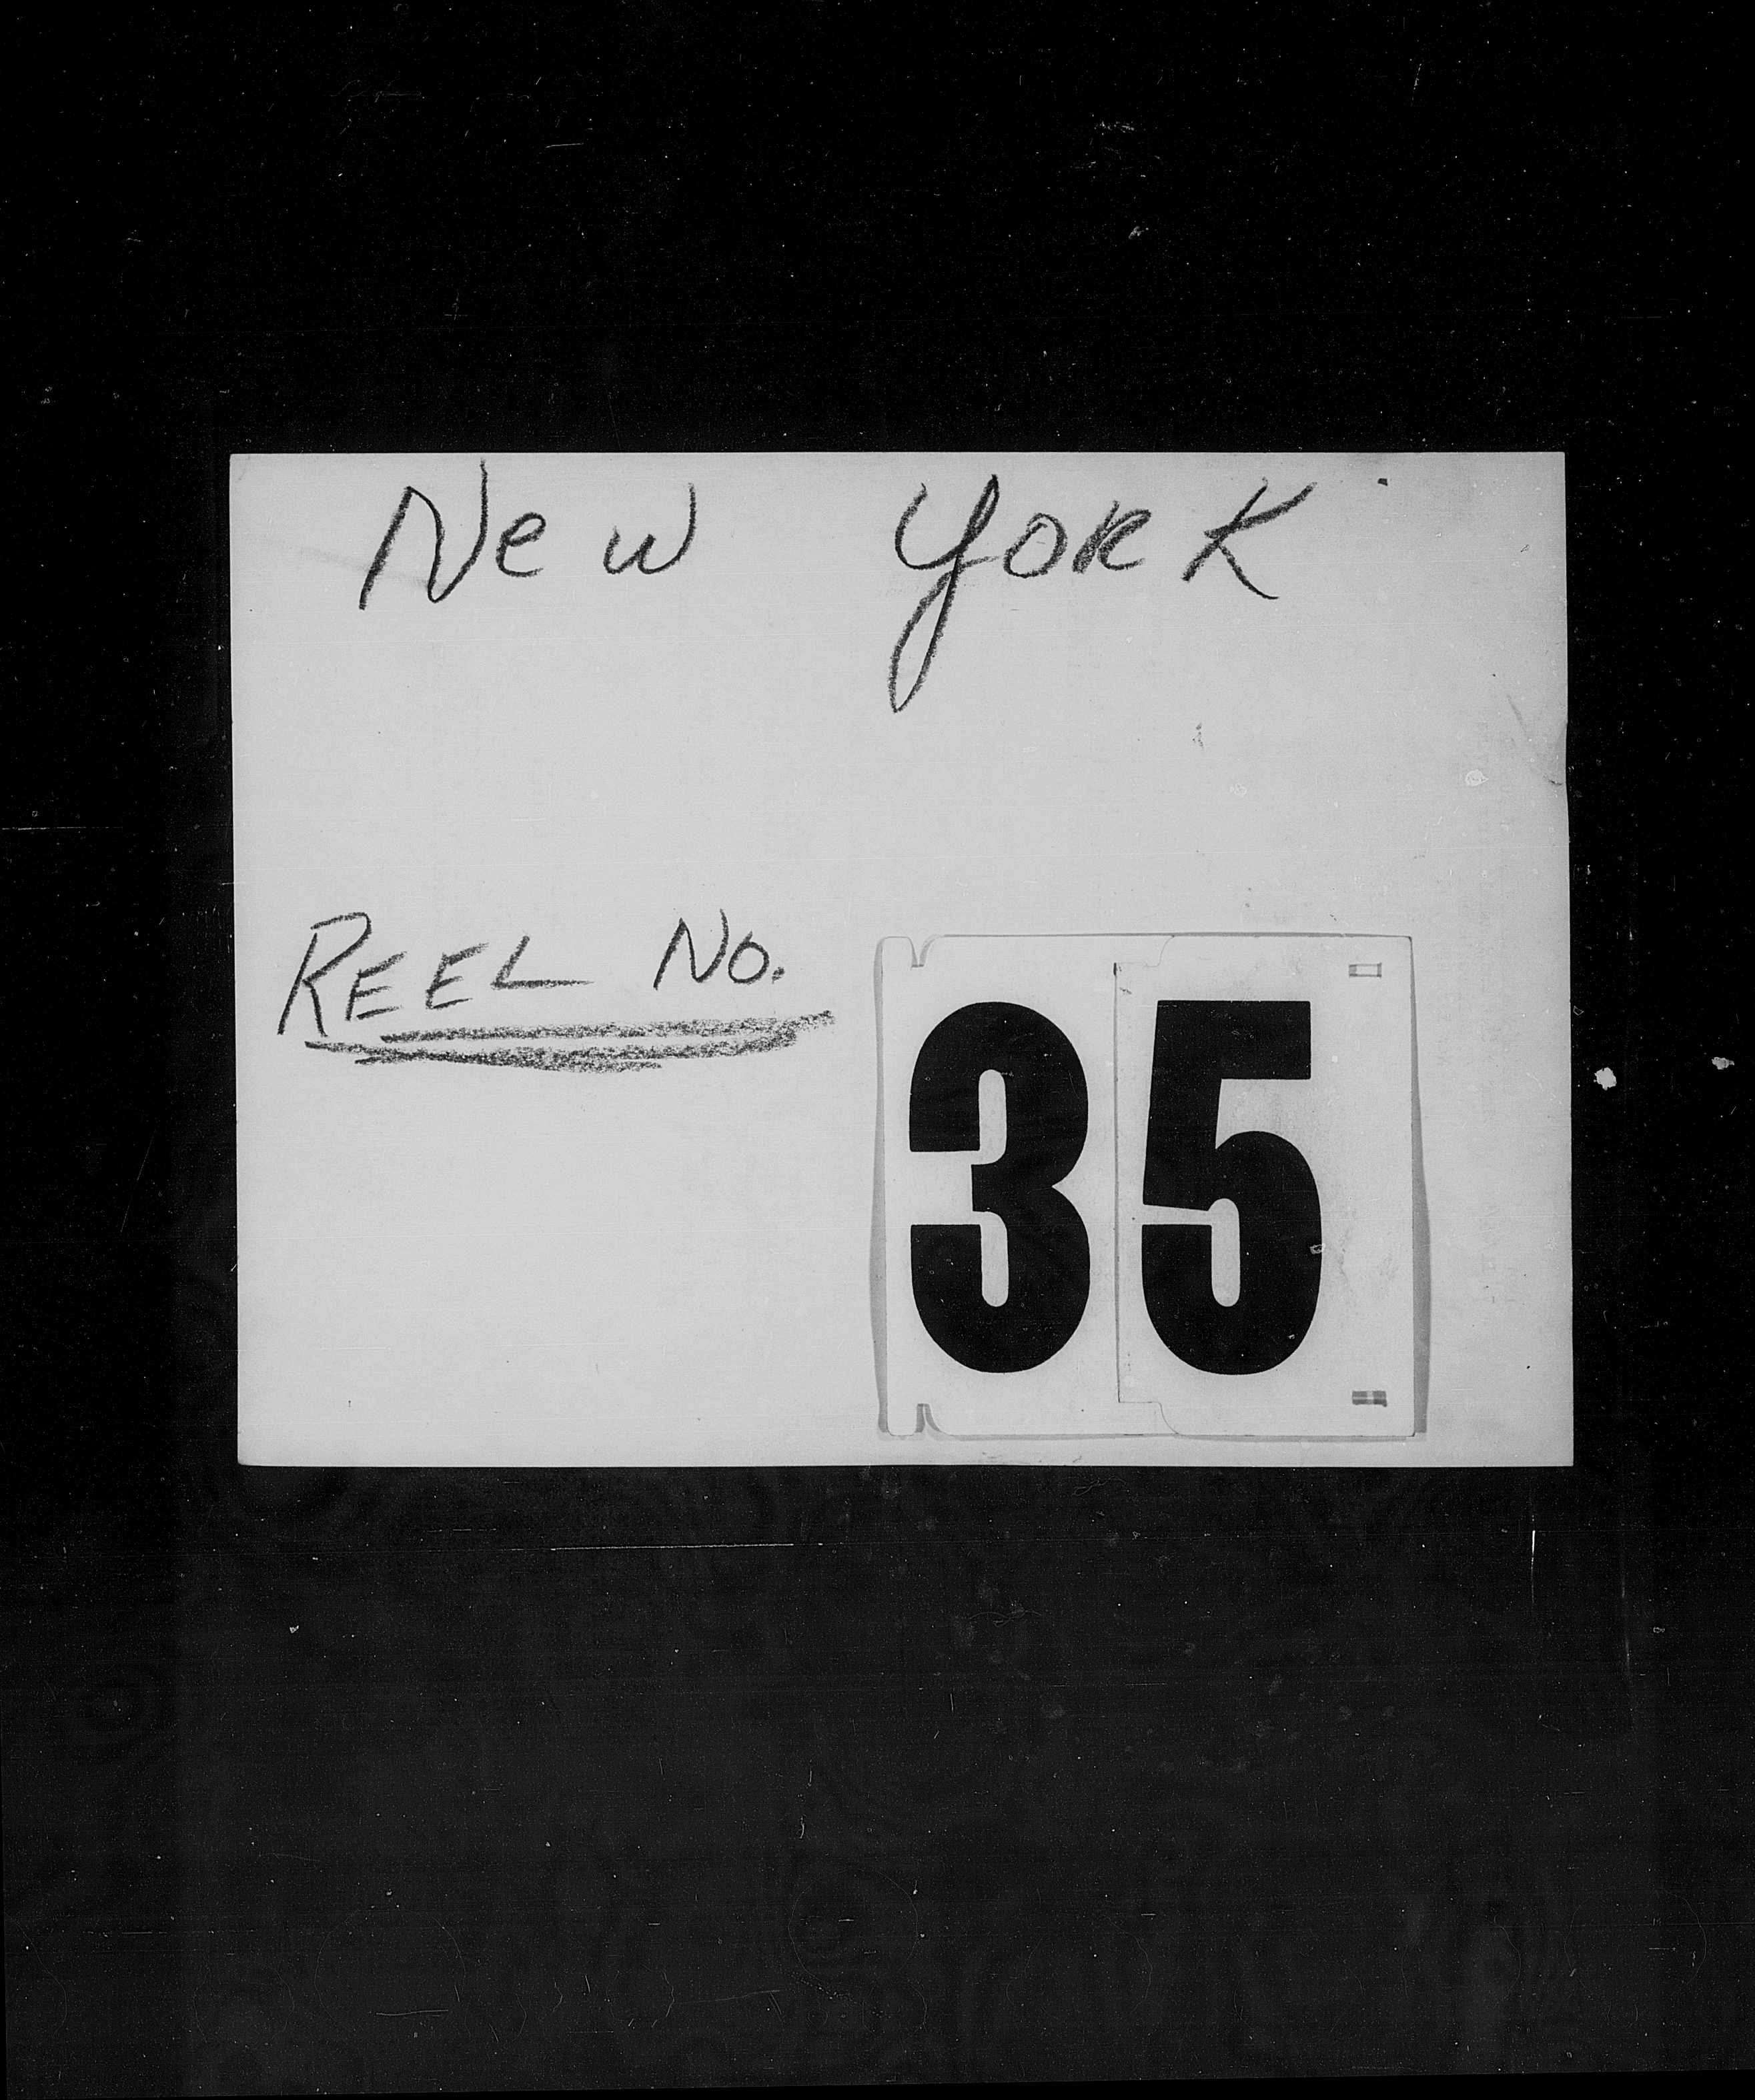 New York
REEL No. 35